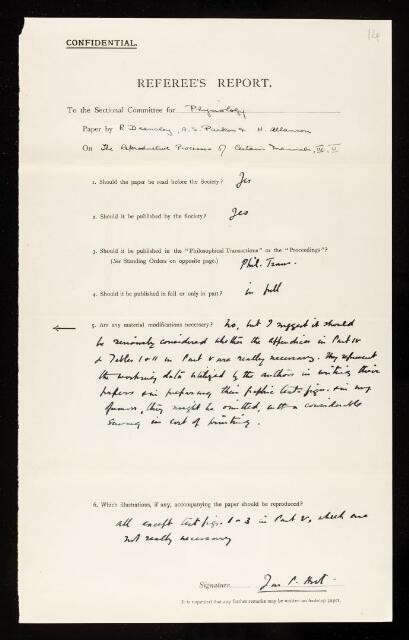 14
CONFIDENTIAL.
REFEREE'S REPORT.
To the Sectional Committee for Physiology
Paper by R Deanesly, A. S. Parkes & H. Allanson
On The Reproductive Processes of Certain Mammals, IV. V.
1. Should the paper be read before the Society? Yes
2. Should it be published by the Society? Yes
3. Should it be published in the "Philosophical Transactions" or the "Proceedings"?
(See Standing Orders on opposite page.) Phil. Trans.
4. Should it be published in full or only in part? in full
5. Are any material modifications necessary? No, but I suggest it should
be seriously considered whether the appendices in Part IV
& Tables I & II in Part V are really necessary. They represent
the working data utilized by the authors in writing their
papers & in preparing their graphic text-figs. & in my
opinion, they might be omitted, with a considerable
saving in cost of printing.
6. Which illustrations, if any, accompanying the paper should be reproduced?
all except text figs. 1 & 3 in Part V, which are
not really necessary
Signature
It is requested that any further remarks may be written on foolscap paper.